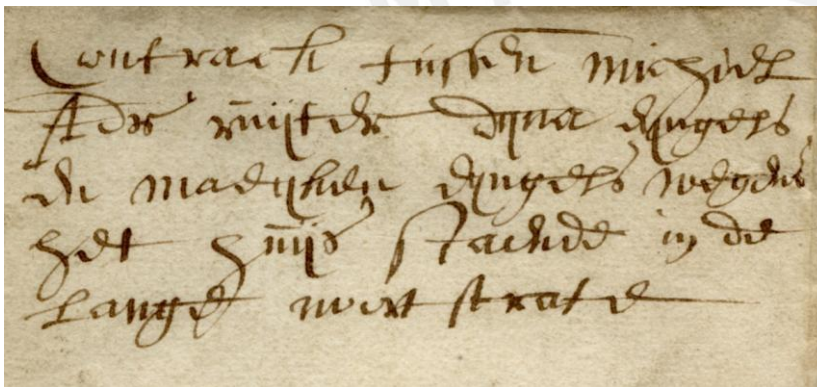 Contract tussen Michiel
Adr ruijter dyna Engels
en maeijken Engels wegens
het huijs staende in de
Lange nort strate